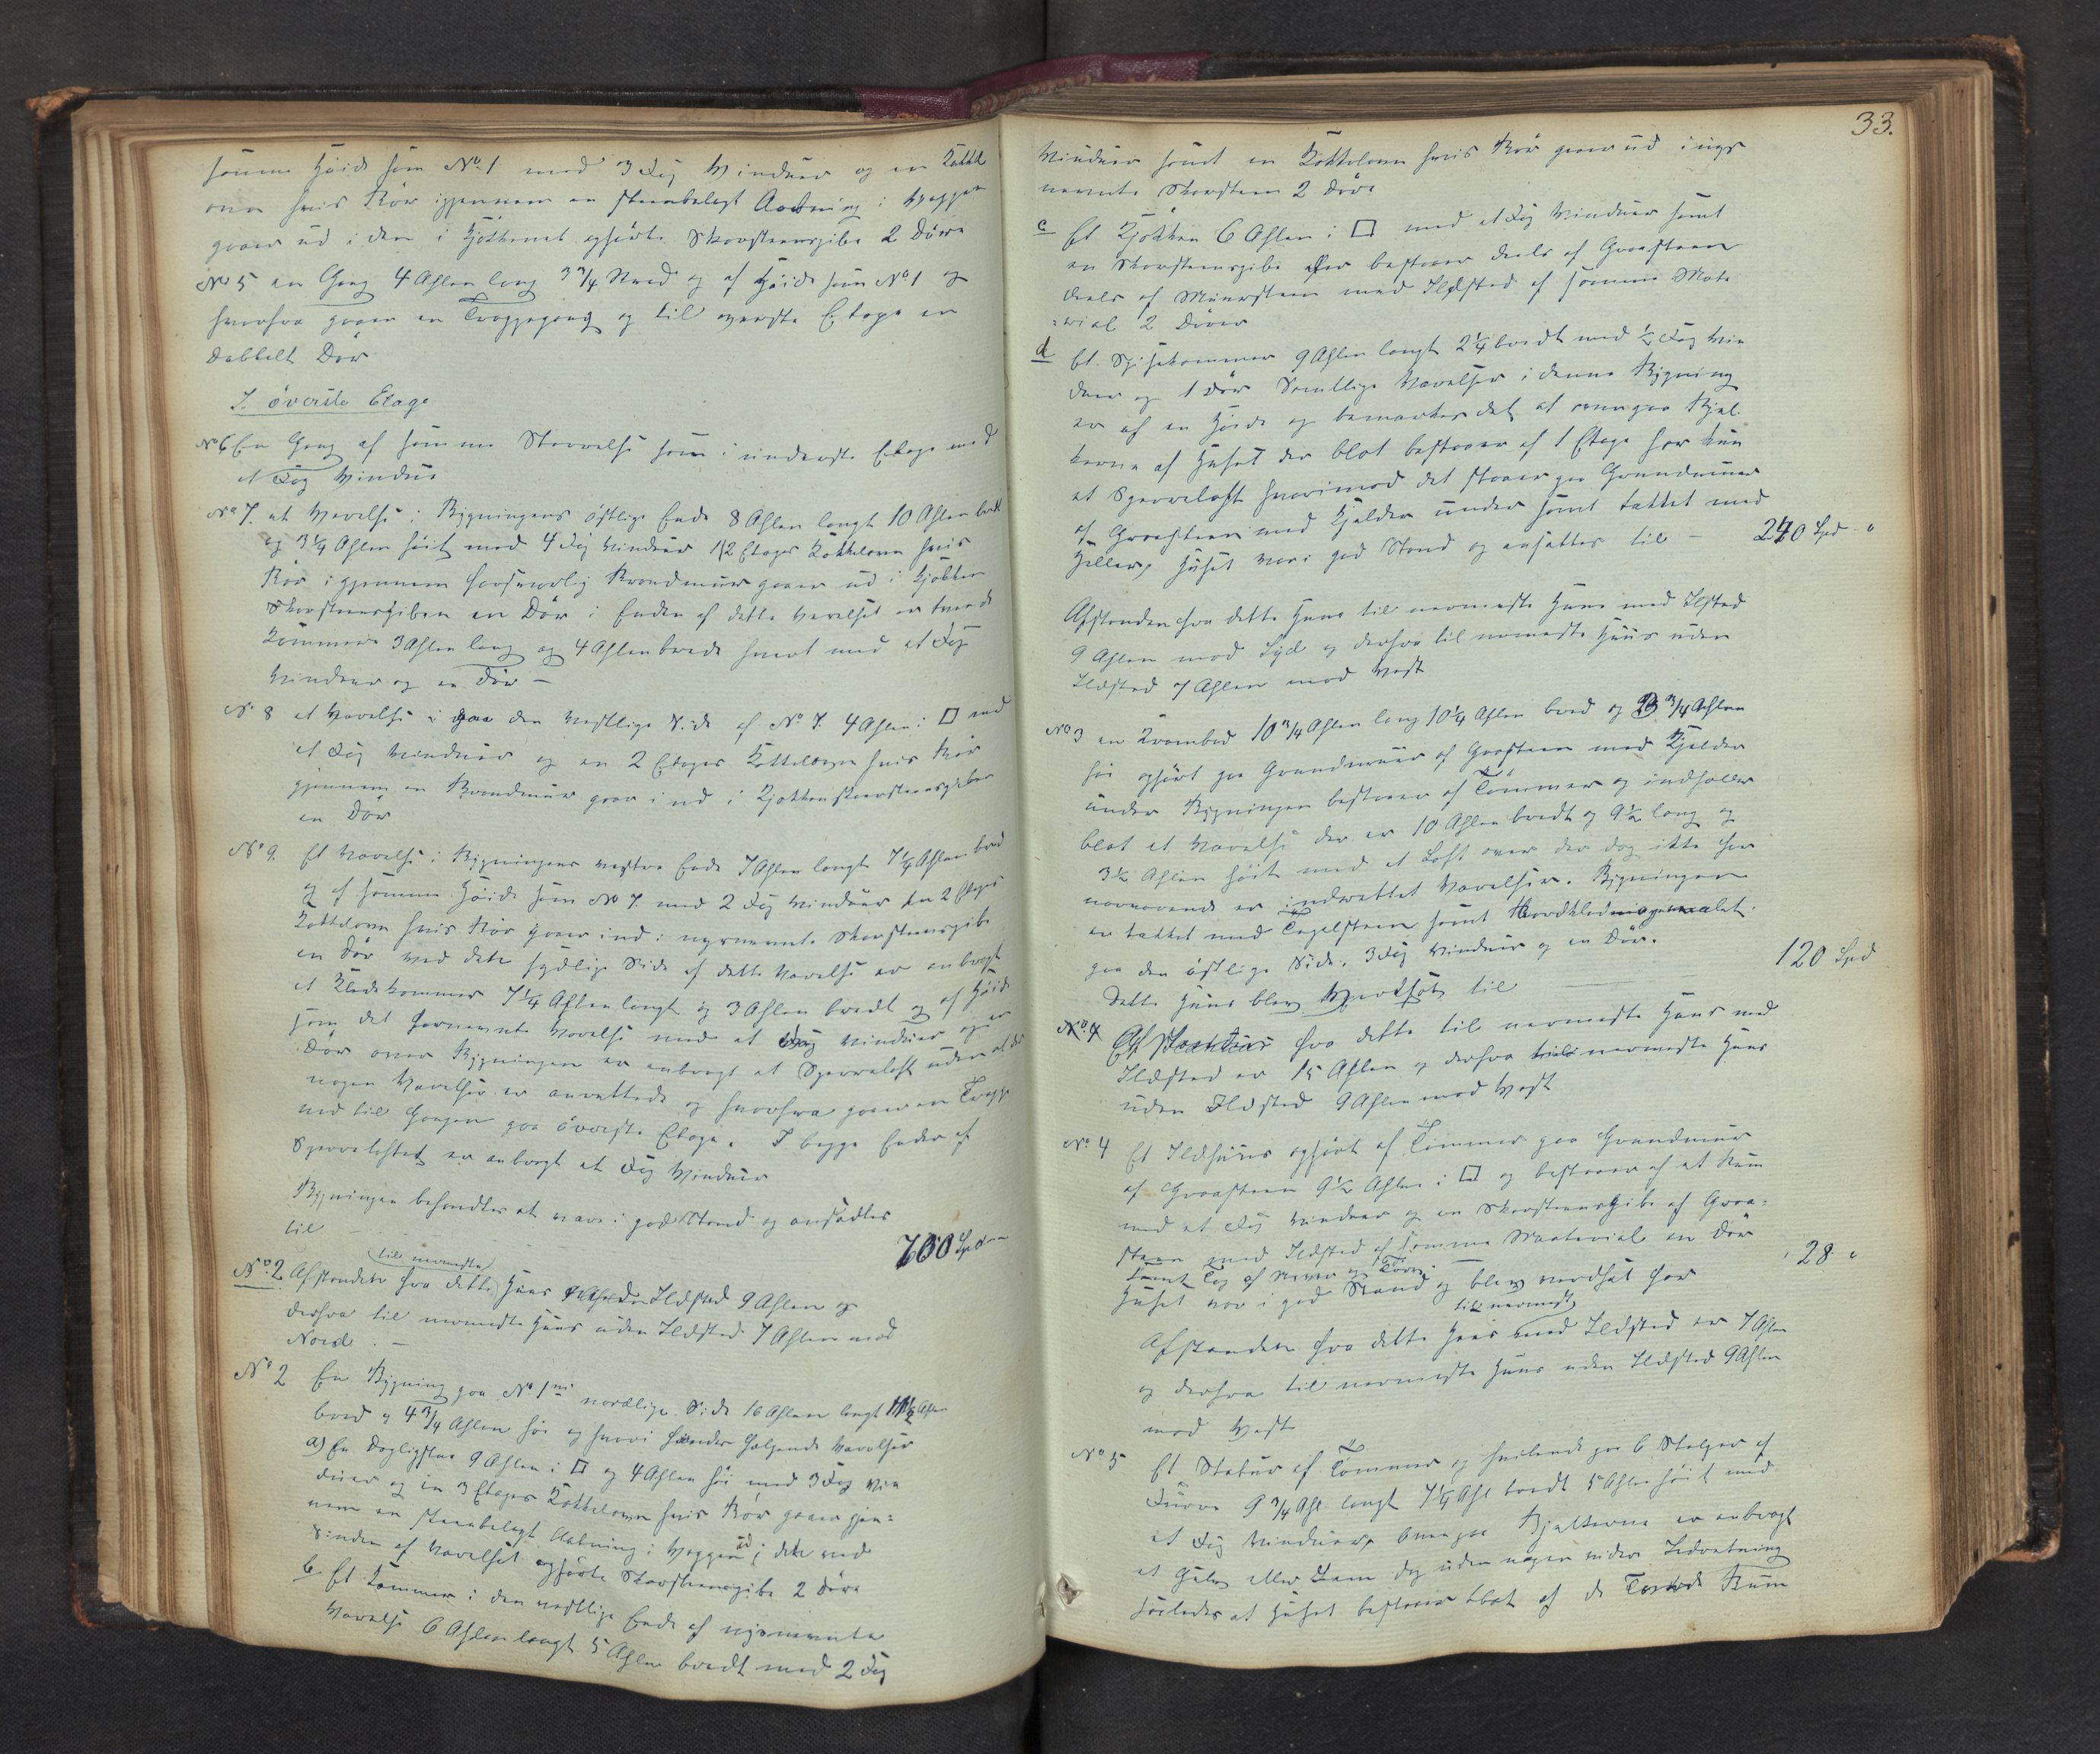 samme Høide som No 1 med 3 Fag Vinduer og en Kakkel
ovn hvis Rör igjennem en steenbelagt Aabning i Væggen
gaaer ud i den i Kjøkkenet opførte Skorsteenspibe 2 Døre
No 5 en Gang 4 Ahlen lang 3 3/4 bred og af Høide som No 1 og
hvorfra gaaer en Trappegang op til øverste Etage en
dobbelt Dør
I. øverste Etage
No 6 En Gang af samme Størrelse som i underste Etage med
et Fag Vindue
No 7. et Værelse i Bygningens østlige Ende 8 Ahlen langt 10 Ahlen bredt
og 3 1/4 Ahlen høit med 4 Fag Vinduer 1 2 Etages Kakkelovn hvis
Rör igjennem forsvarlig Brandmuur gaaer ud i Kjøkken
Skorsteenspiben en Dør i Enden af dette Værelset er tvende
Kammere 3 Ahlen lang og 4 Ahlen brede hvert med et Fag
Vinduer og en Dør –
No 8 et Værelse i paa den vestlige Side af No 7. 4 Ahlen i □ med
et Fag Vinduer og en 2 Etages Kakkelovn hvis Rör
gjennem en Brandmuur gaaer ind i Kjøkkenskorsteenspiben
en Dør
No 9. Et Værelse i Bygningens vestre Ende 7 Ahlen langt 7 1/4 Ahlen bred
og af samme Høide som No 7. med 2 Fag Vinduer En 2 Etages
Kakkelovn hvis Rör gaaer ind i nysnævnte Skorsteenspibe
en Dør ved dets sydlige Side af dette Værelse er anbragt
et Klædekammer 7 1/4 Ahlen langt og 3 Ahlen bredt og af Høide
som det fornævnte Værelse med et Fag Vinduer og en
Dør over Bygningen er anbragt et Sperreloft uden at der
nogen Værelser er anrettede og hvorfra gaaer en Trappe
ned til Gangen paa øverste Etage. I begge Ender af
Sperreloftet er anbragt et Fag Vinduer
Bygningen befandtes at være i god Stand og ansattes
til – 700 Spd –
til nærmeste
No 2 Afstanden fra dette Huus Ildsted 9 Ahlen og
derfra til nærmeste Huus uden Ildsted 7 Ahlen mod
Nord. –
No 2 En Bygning paa No 1 nordlige Side 16 Ahlen langt 11 1/2 Ahlen
bred og 4 3/4 Ahlen høi og hvori findes følgende Værelser
a) En Dagligstue 9 Ahlen i □ og 4 Ahlen høi med 3 Fag Vin
duer og en 3 Etages Kakkelovn hvis Rör gaaer gjen=
nem en steenbelagt Aabning i Væggen ud i den ved
Siden af Værelset opførte Skorsteenspibe 2 Døre
b. Et Kammer i den vestlige Ende af nysnævnte
Værelse 6 Ahlen langt 5 Ahlen bredt med 2 Fag
33.
Vinduer samt en Kakkelovn hvis Rör gaaer ud i nys
nævnte Skorsteen 2 Døre
c Et Kjøkken 6 Ahlen i □ med et Fag Vinduer samt
en Skorsteenspibe der bestaaer deels af Graasteen
deels af Muursteen med Ildsted af samme Mate
=rial 2 Døre
d Et Spisekammer 9 Ahlen langt 2 1/4 bredt med 1/2 Fag Vin
duer og 1 Dør Samtlige Værelser i denne Bygning
er af en Høide og bemærkes det at ovenpaa Bjel
kerne af Huset der blot bestaaer af 1 Etage har kun
et Sperreloft hvorimod det staaer paa Grundmuur
af Graasteen med Kjelder under samt tækket med
Heller, Huset var i god Stand og ansattes til – 240 Spd "
Afstanden fra dette Huus til nærmeste Huus med Ildsted
9 Ahlen mod Syd og derfra til nærmeste Huus uden
Ildsted 7 Ahlen mod Vest
No 3 en Krambod 10 3/4 Ahlen lang 10 1/4 Ahlen bred og 3/4 Ahlen
høi opført paa Grundmuur af Graasteen med Kjelder
under Bygningen bestaaer af Tømmer og indholder
blot et Værelse der er 10 Ahlen bredt og 9 1/2 lang og
3 1/2 Ahlen høit med et Loft over der dog ikke for
nærværende er indrettet Værelser. Bygningen
er tækket med Tegelsteen samt Bordklædning malet
paa den østlige Side. 3 Fag Vinduer og en Dør.
Dette Huus blev Værdsat til 120 Spd
No 4 Afstanden fra dette til nærmeste Huus med
Ildsted er 15 Ahlen og derfra til nærmeste Huus
uden Ildsted 9 Ahlen mod Vest
No 4 Et Ildhuus opført af Tømmer paa Grundmuur
af Graasteen 9 1/2 Ahlen i □ og bestaaer af et Rum
med et Fag Vinduer og en Skorsteenspibe af Graa=
steen med Ildsted af samme Material en Dør
samt Tag af Næver og Torv.
Huset var i god Stand og blev værdsat for " 28 "
til nærmeste
Afstanden fra dette Huus med Ildsted er 7 Ahlen
og derfra til nærmeste Huus uden Ildsted 9 Ahlen
mod Vest
No 5 Et Stabur af Tømmer og hvilende paa 6 Stolper af
Furu 9 3/4 Ahl langt 7 1/4 Ahl bredt 5 Ahlen høit med
et Fag Vinduer, ovenpaa Bjelkerne er anbragt
et Gulv eller Lem dog uden nogen videre Indretning
saaledes at Huset bestaaer blot af de Rum